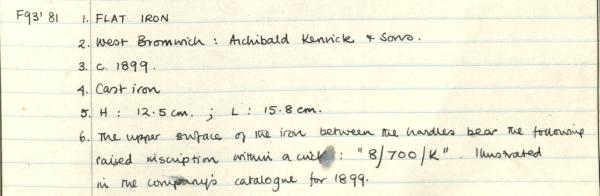 F93'81 1. FLAT IRON
2. West Bromwich : Archibald Kenrick & Sons.
3. c. 1899.
4. Cast iron
5. H : 12.5 cm. ; L : 15.8 cm.
6. The upper surface of the iron between the handles bear the following
raised inscription within a : "8/700/K". Illustrated
in the company's catalogue for 1899.